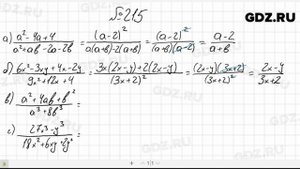 GDZ.RU
№215
а) (a²-4a+4)/(a²+ab-2a-2b) = (a-2)²/(a(a+b)-2(a+b)) = (a-2)²/((a+b)(a-2)) = (a-2)/(a+b)
б) (6x²-3xy+4x-2y)/(9x²+12x+4) = (3x(2x-y)+2(2x-y))/(3x+2)² = ((2x-y)(3x+2))/(3x+2)² = (2x-y)/(3x+2)
в) (a²+4ab+b²)/(a³+8b³) =
г) (27x³-y³)/(18x²+6xy+2y²) =
GDZ.RU